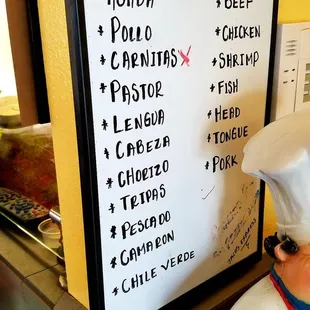 * POLLO
* CARNITAS X
* PASTOR
* LENGUA
* CABEZA
* CHORIZO
* TRIPAS
* PESCADO
* CAMARON
* CHILE VERDE
* BEEF
* CHICKEN
* SHRIMP
* FISH
* HEAD
* TONGUE
* PORK